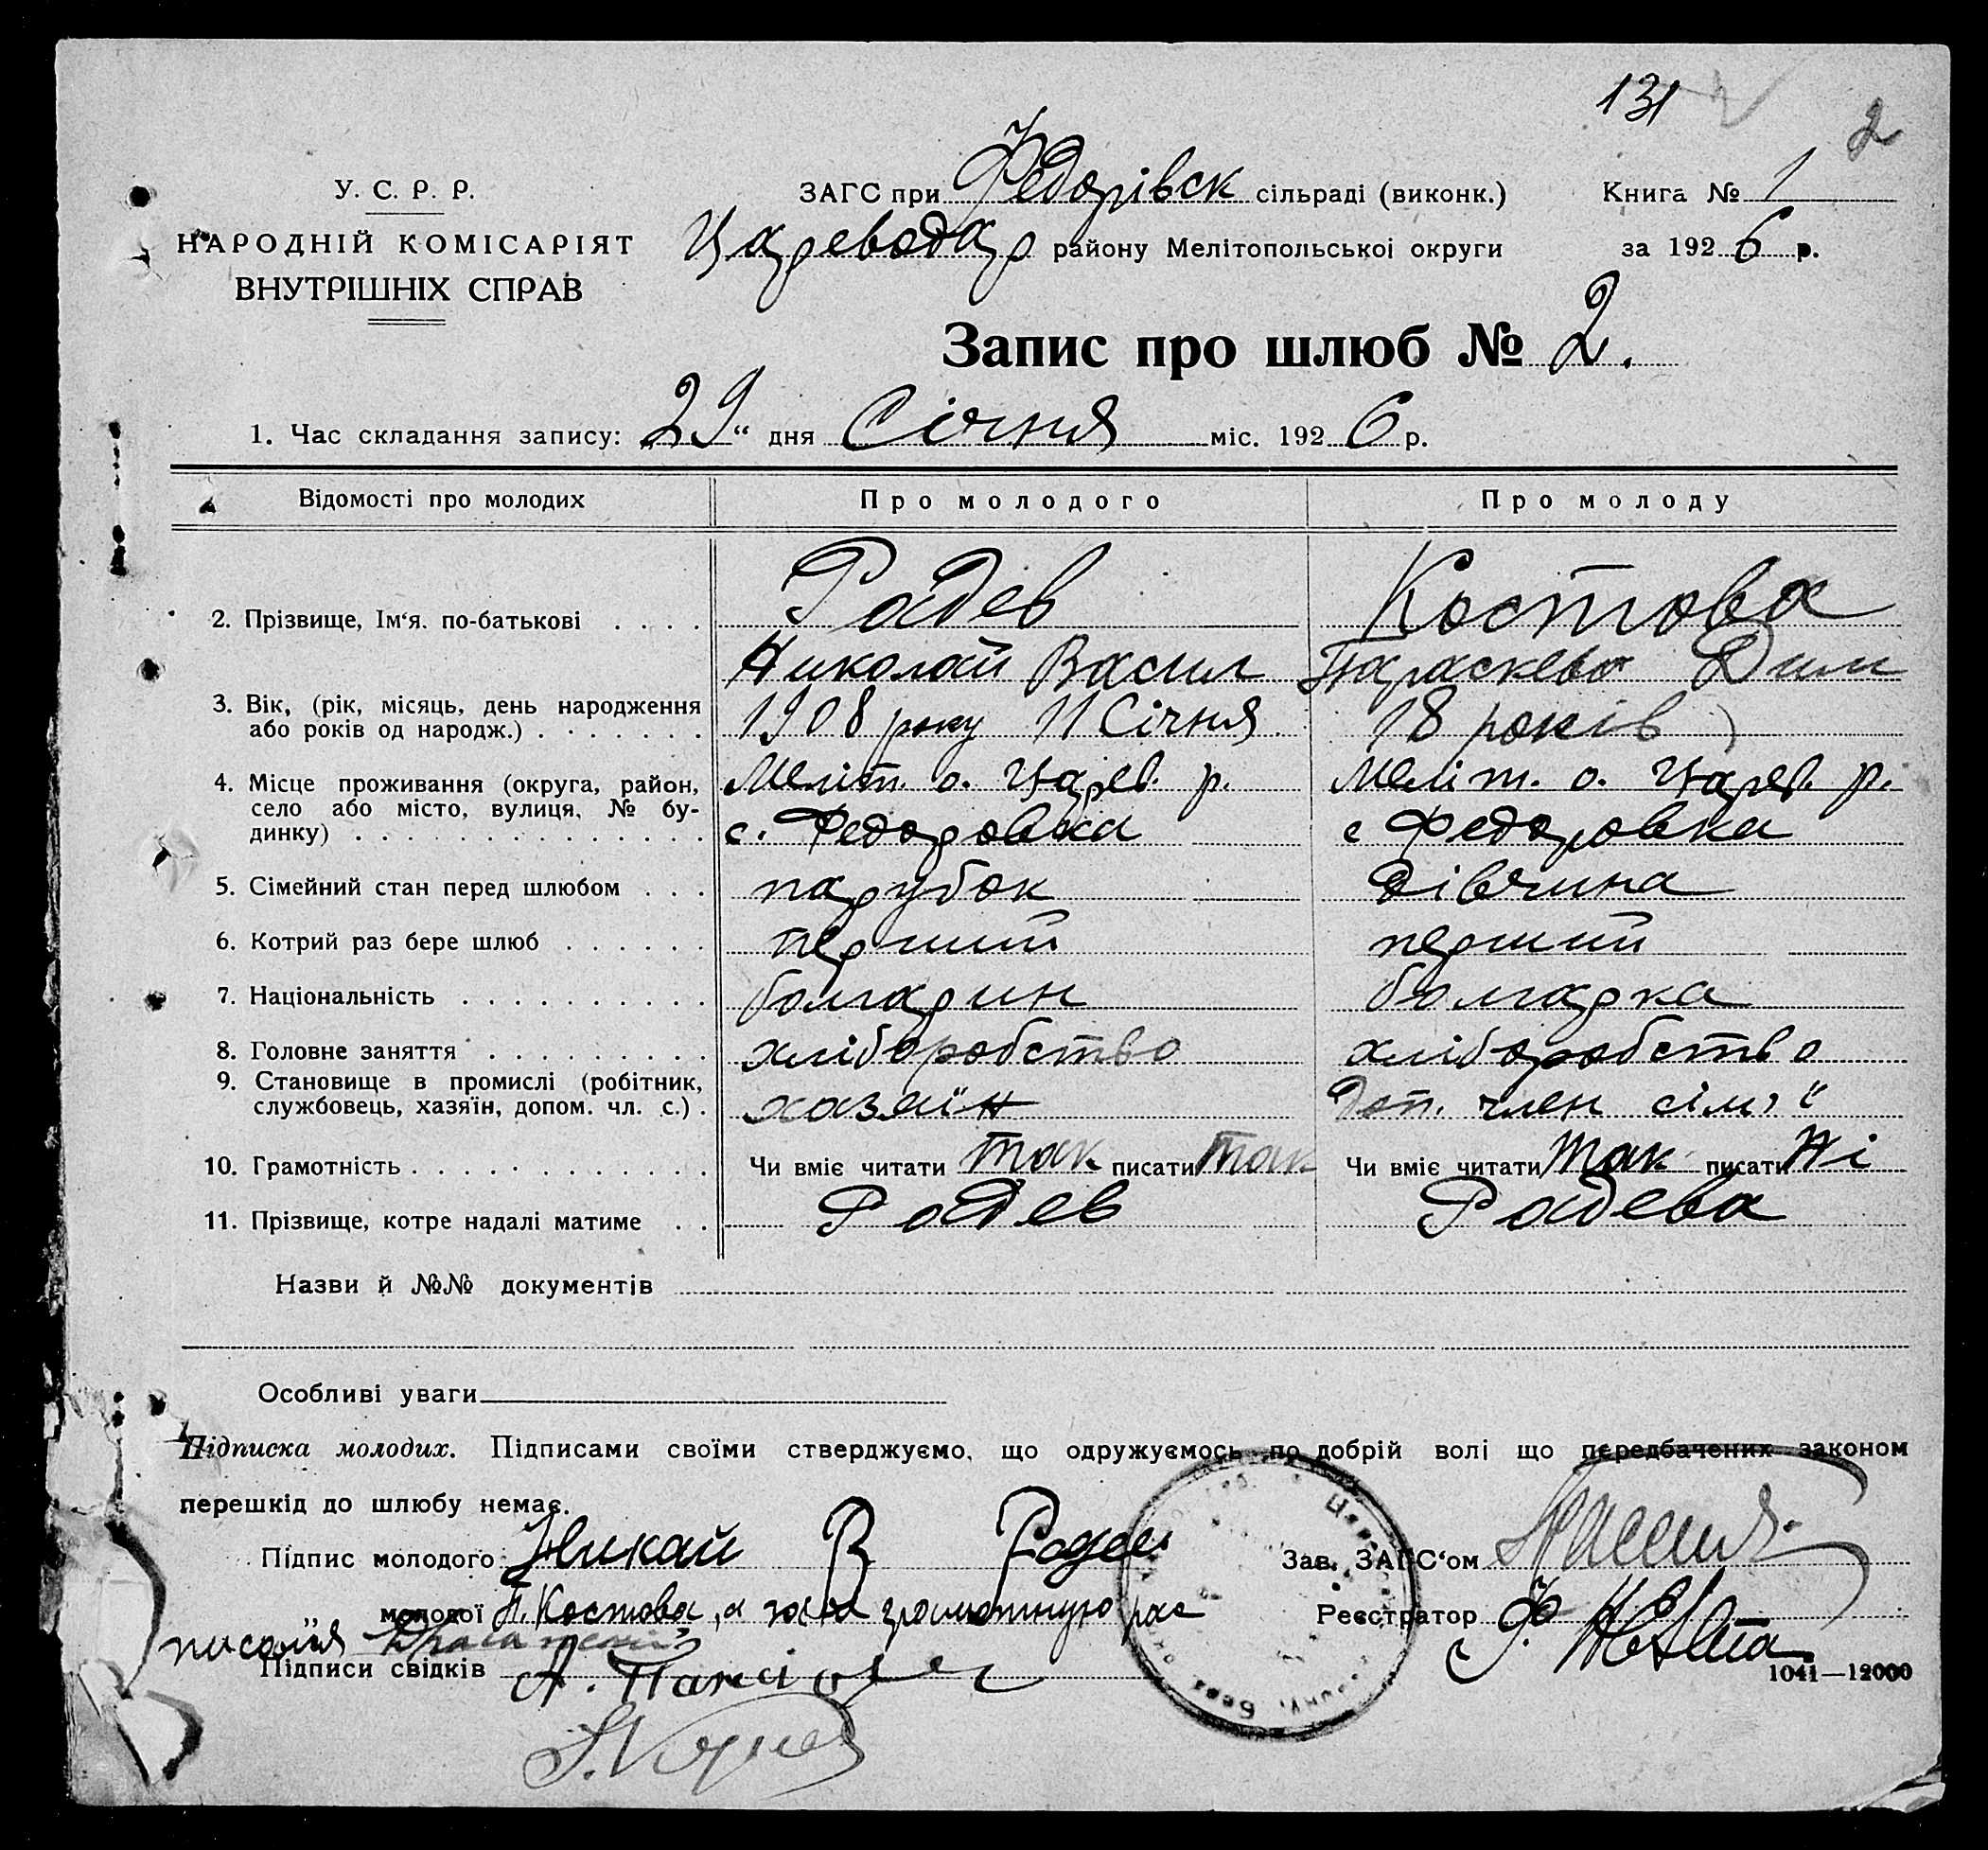 131
2
У. С. Р. Р.
НАРОДНІЙ КОМІСАРІЯТ
ВНУТРІШНІХ СПРАВ
ЗАГС при Федорівск сільраді (виконк.)
Книга № 1
Цареводар району Мелітопольської округи
за 1926 р.
Запис про шлюб № 2.
1. Час складання запису: 29 " дня Січня міс. 1926 р.
Відомості про молодих Про молодого Про молоду
2. Прізвище, Ім‘я. по-батькові Радев Костова
Николай Васил Параскева Дим
3. Вік, (рік, місяць, день народження
або років од народж.) 1908 року 11 Січня 18 років
4. Місце проживання (округа, район, Меліт. о. Царев. р. Меліт. о. Царев. р.
село або місто, вулиця, № бу-
динку) с. Федоровка с Федоровка
5. Сімейний стан перед шлюбом парубок дівчина
6. Котрий раз бере шлюб перший перший
7. Національність болгарин болгарка
8. Головне заняття хліборобство хліборобство
9. Становище в промислі (робітник,
службовець, хазяїн, допом. чл. с.) хазяїн доп. член сім,ї
10. Грамотність Чи вміє читати так писати так Чи вміє читати так писати Ні
11. Прізвище, котре надалі матиме Радев Радева
Назви й №№ документів
Особливі уваги
Підписка молодих. Підписами своїми стверджуємо, що одружуємось по добрій волі що передбачених законом
перешкід до шлюбу немає.
Підпис молодого В Радев
Зав. ЗАГС‘ом
„ молодої П. Костова, а за грамотную рас
Реєстратор
Підписи свідків А.
1041—12000